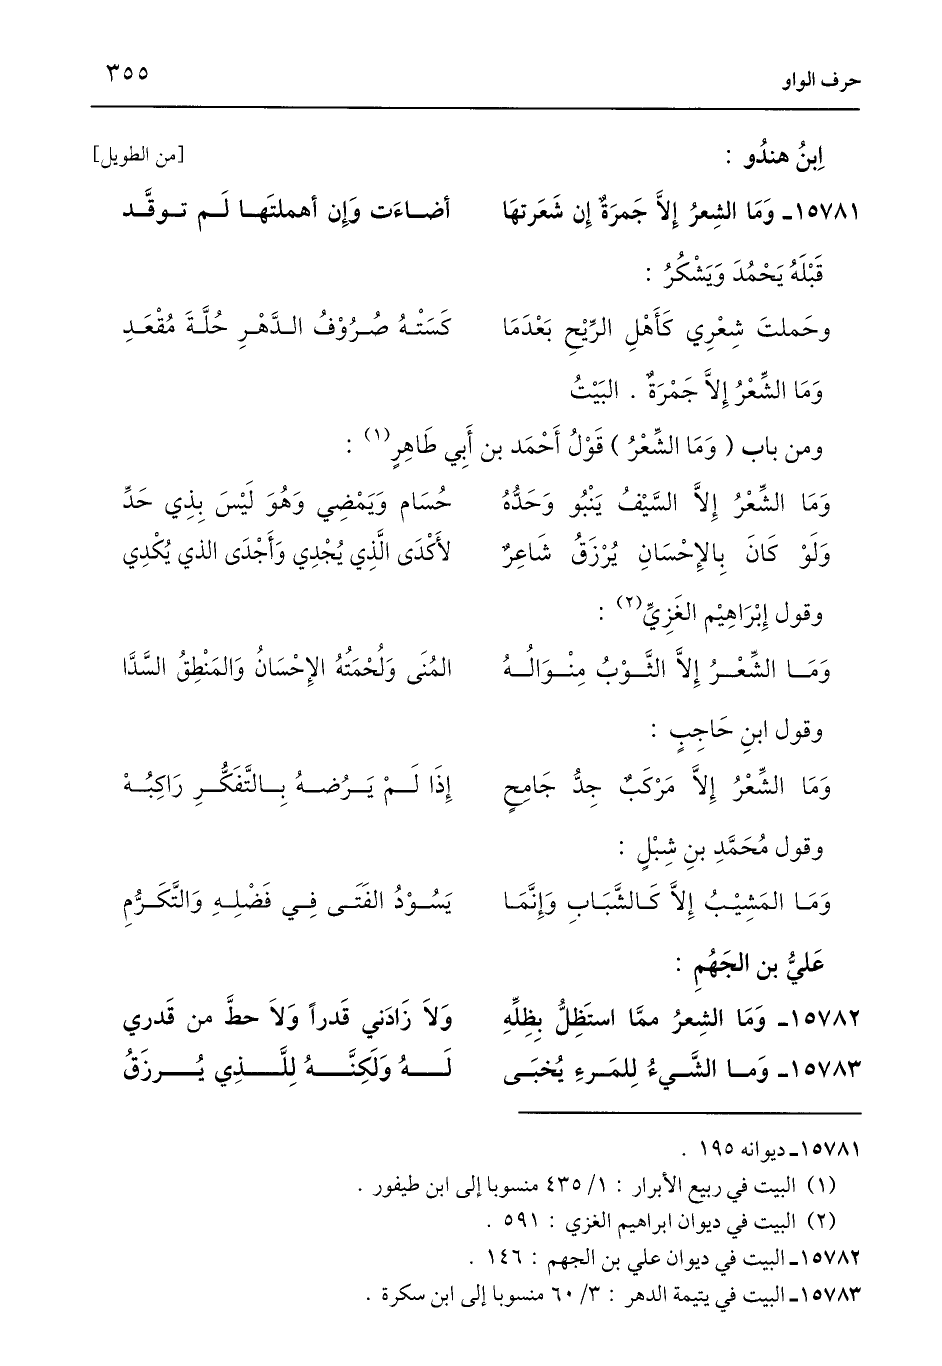 حرف الواو ٣٥٥
اِبنُ هندُو : [من الطويل]
١٥٧٨١ـ وَمَا الشِعرُ إلاَّ جَمرَةٌ إن شَعَرتهَا أضاءَت وَإن أهملتَها لَم توقَّد
قَبْلَهُ يَحْمُدَ وَيَشْكُرُ :
وحَملتَ شِعْرِي كَأَهْلِ الرِّيْحِ بَعْدَمَا كَسَتْهُ صُرُوْفُ الدَّهْرِ حُلَّةَ مُقْعَدِ
وَمَا الشِّعْرُ إلاَّ جَمْرَةٌ . البَيْتُ
ومن باب ( وَمَا الشِّعْرُ ) قَوْلُ أَحْمَد بن أَبِي طَاهِرٍ(١) :
وَمَا الشِّعْرُ إلاَّ السَّيْفُ يَنْبُو وَحَدُّهُ حُسَام وَيَمْضِي وَهُوَ لَيْسَ بِذِي حَدِّ
وَلَوْ كَانَ بِالإحْسَانِ يُرْزَقُ شَاعِرٌ لأَكْدَى الَّذِي يُجْدِي وَأَجْدَى الذي يُكْدِي
وقول إبْرَاهِيْم الغَزِيِّ(٢) :
وَمَا الشِّعْرُ إلاَّ الثَّوْبُ مِنْوَالُهُ المُنَى وَلُحْمَتُهُ الإحْسَانُ وَالمَنْطِقُ السَّدَّا
وقول ابنِ حَاجِبٍ :
وَمَا الشِّعْرُ إلاَّ مَرْكَبٌ جِدُّ جَامِحٍ إذَا لَمْ يَرُضهُ بِالتَّفَكُّرِ رَاكِبُهْ
وقول مُحَمَّدِ بنِ شِبْلٍ :
وَمَا المَشِيْبُ إلاَّ كَالشَّبَابِ وَإنَّمَا يَسُوْدُ الفَتَى فِي فَضْلِهِ وَالتَّكَرُّمِ
عَليُّ بن الجَهُمِ :
١٥٧٨٢ـ وَمَا الشِعرُ ممَّا استَظِلُّ بِظِلِّهِ وَلاَ زَادَني قَدراً وَلاَ حطَّ من قَدري
١٥٧٨٣ـ وَما الشَّيءُ لِلمَرءِ يُخبَى لَهُ وَلَكِنَّهُ لِلَّذِي يُرزَقُ
١٥٧٨١ـ ديوانه ١٩٥ .
(١) البيت في ربيع الأبرار : ١/ ٤٣٥ منسوبا إلى ابن طيفور .
(٢) البيت في ديوان ابراهيم الغزي : ٥٩١ .
١٥٧٨٢ـ البيت في ديوان علي بن الجهم : ١٤٦ .
١٥٧٨٣ـ البيت في يتيمة الدهر : ٣/ ٦٠ منسوبا إلى ابن سكرة .